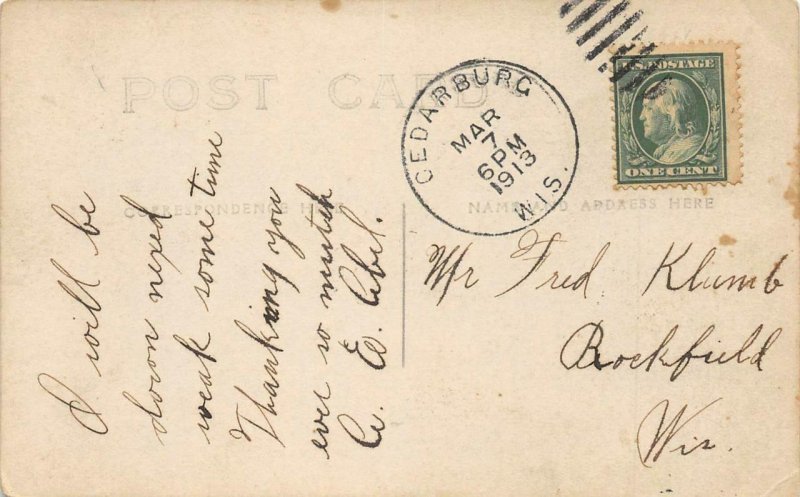 POST CARD
CORRESPONDENCE HERE
NAME AND ADDRESS HERE
CEDARBURG
MAR
7
6 PM
1913
WIS.
U.S. POSTAGE
ONE CENT
I will be
down nexed
weak some time
Thanking you
ever so mutch
E. Abel.
Mr Fred Klumb
Rockfield
Wis.